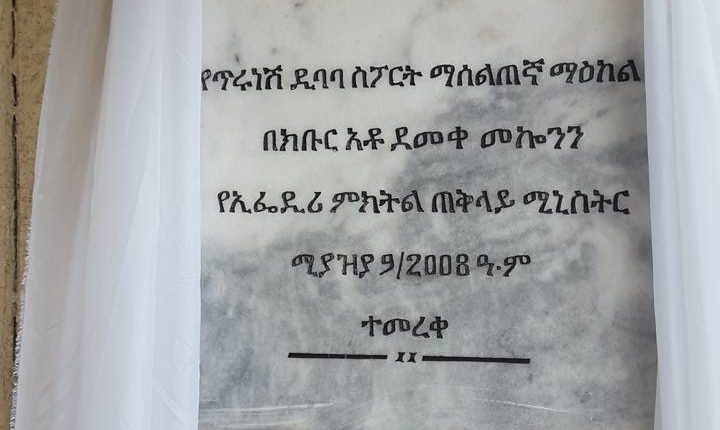 የጥሩነሽ ዲባባ ስፖርት ማሰልጠኛ ማዕከል
በክቡር አቶ ደመቀ መኰንን
የኢፌዲሪ ምክትል ጠቅላይ ሚኒስትር
ሚያዝያ 9/2008 ዓ.ም
ተመረቀ